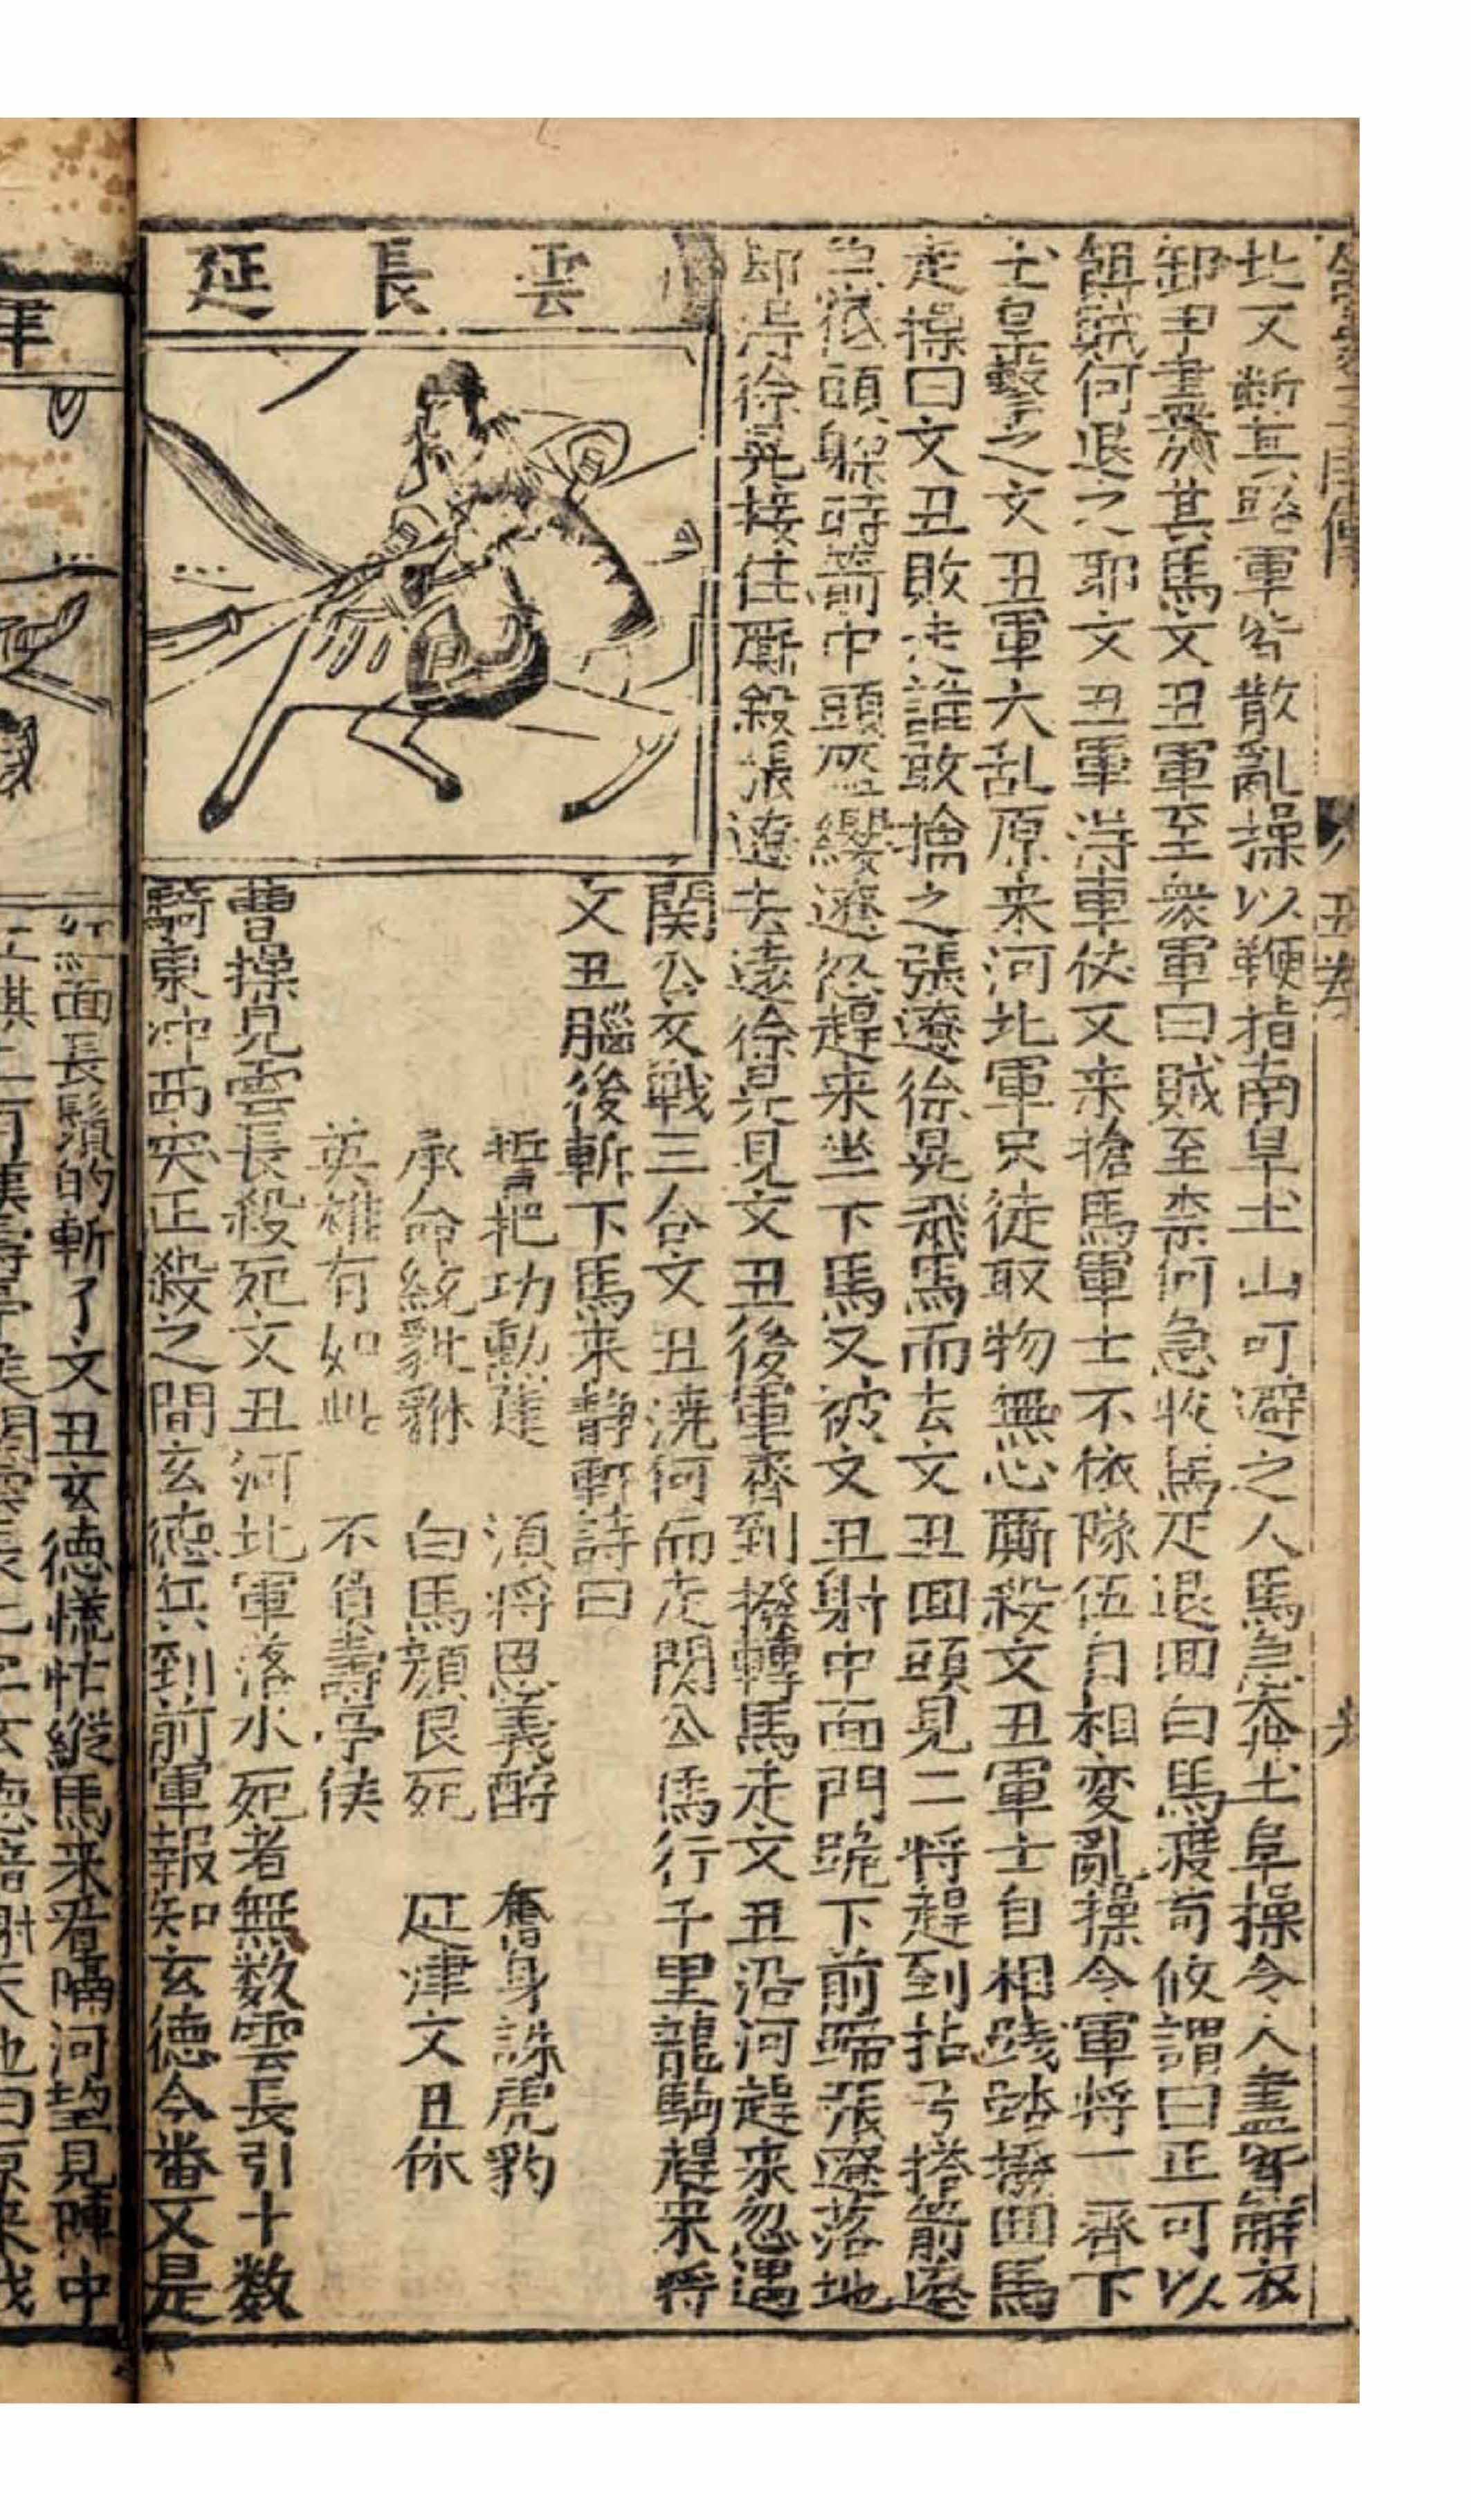 北又断其路軍皆散亂操以鞭指南阜土山可避之人馬急奔土阜操令人盡皆解衣
卸甲盡放其馬文丑軍至衆軍曰賊至柰何急收馬疋退回白馬渡荀攸謂曰正可以
餌賊何退之耶文丑軍淂車仗又来搶馬軍士不依隊伍自相変亂操令軍将一齊下
土阜擊之文丑軍大乱原来河北軍只徒取物無心厮殺文丑軍士自相践踏撥回馬
走操曰文丑敗走誰敢擒之張遼徐晃飛馬而去文丑回頭見二将趕到拈弓搭箭遼
低頭躲時箭中頭盔纓遼忿趕来坐下馬又被文丑射中面門跪下前蹄張遼落地
却淂徐晃接住厮殺張遼去遠徐晃見文丑後軍齊到撥轉馬走文丑沿河趕来忽遇
関公交戰三合文丑澆河而走関公馬行千里龍駒趕来将
文丑腦後斬下馬来静軒詩曰
誓把功勲建 湏将恩義酧 奮身誅虎豹
承命統貔貅 白馬顔良死 延津文丑休
英雄有如此 不負壽亭侯
曹操見雲長殺死文丑河北軍落水死者無数雲長引十数
騎東冲西突正殺之間玄德兵到前軍報知玄德今番又是
雲長延
紅面長鬚的斬了文丑玄德慌忙縱馬来看隔河望見陣中